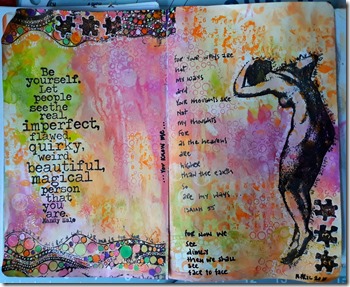 Be
yourself.
Let
people
see the
real,
imperfect,
flawed,
quirky,
weird,
beautiful,
magical
person
that
you
are.
Mandy Hale
...you know me...
For your ways are
not
my ways
And
Your thoughts are
Not
my thoughts
For
as the heavens
are
higher
than the earth
so
are my ways
Isaiah 55
For now we
see
dimly
then we shall
see
face to face